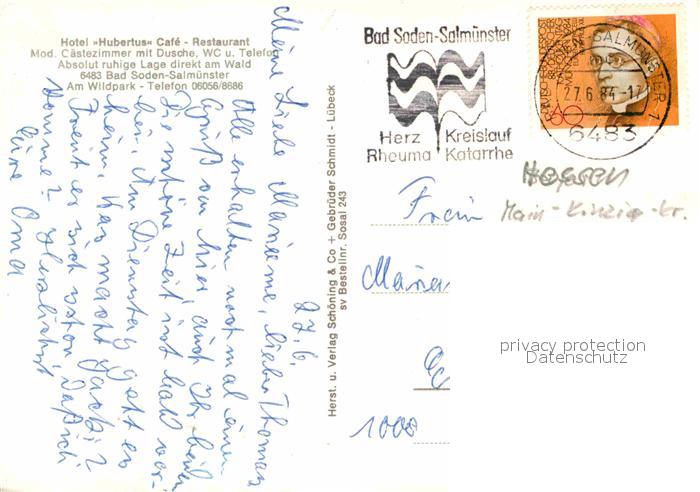 Hotel »Hubertus« Café - Restaurant
Mod. Gästezimmer mit Dusche, WC u. Telefon
Absolut ruhige Lage direkt am Wald
6483 Bad Soden-Salmünster
Am Wildpark - Telefon 06056/8686
27.6.
Meine Liebe Marianne, lieber Thomas
Alle erhalten noch mal einen
Gruß von hier, auch Ihr beiden
Die schöne Zeit ist bald vor-
bei, Am Dienstag geht es
heim. Was macht
Freut er sich schon, daß ich
komme? Herzlichst
Eure Oma
Herst. u. Verlag Schöning & Co + Gebrüder Schmidt - Lübeck
sv Bestellnr. Sosal 243
Bad Soden-Salmünster
Herz Kreislauf
Rheuma Katarrhe
SALMÜNSTER 1
27.6.84-17
6483
60
Hessen
Main-Kinzig-Kr.
Maria
1000
privacy protection
Datenschutz